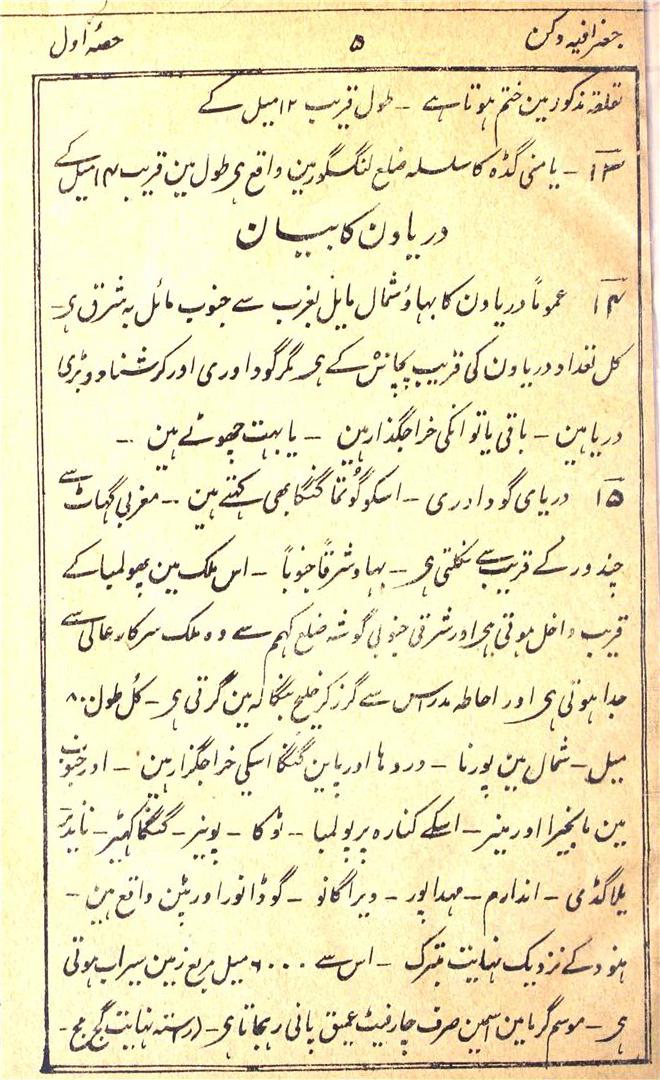 جغرافیہ دکن ۵ حصۂ اول
تعلقہ مذکور مین ختم ہوتا ہے - طول قریب ۱۲ میل کے
۱۳ - یامنی گڈہ کا سلسلہ ضلع لنگسگور مین واقع ہی طول مین قریب ۱۴ میل کے
دریاون کا بیان
۱۴ عموماً دریاون کا بہاؤ شمال مایل بغرب سے جنوب مائل بہ شرق ہی -
کل تعداد دریاون کی قریب پچانس کے ہی مگر گوداوری اور کرشنا دو بڑی
دریا ہین - باقی یا تو انکی خراجگذار ہین - یا بہت چھوٹے ہین -
۱۵ دریای گوداوری - اسکو گوتما گنگا بھی کہتے ہین - مغربی گہاٹ سے
چندور کے قریب سے نکلتی ہی - بہاو شرقاً جنوباً - اس ملک مین پھولمبا کے
قریب داخل ہوتی ہی اور شرقی جنوبی گوشہ ضلع کہمم سے وہ ملک سرکار عالی سے
جدا ہوتی ہی اور احاطہ مدراس سے گزر کر خلیج بنگالہ مین گرتی ہی - کل طول ۸۰۰
میل - شمال مین پورنا - دردہا اور پاین گنگا اسکی خراجگزار ہین - اور جنوب
مین مانجیرا اور منیر - اسکے کنارہ پر پولمبا - ٹوکا - پونیر - گنگا کہیڑ - ناندیڑ
یلاگڈی - اندارم - مہداپور - ویراگانو - گوڈانور اور پٹن واقع ہین -
ہنود کے نزدیک نہایت متبرک - اس سے ۶۰۰۰ میل مربع زمین سیراب ہوتی
ہی - موسم گرما مین اسمین صرف چار فیٹ عمیق پانی رہجاتا ہی - (رستہ نہایت کج مج -